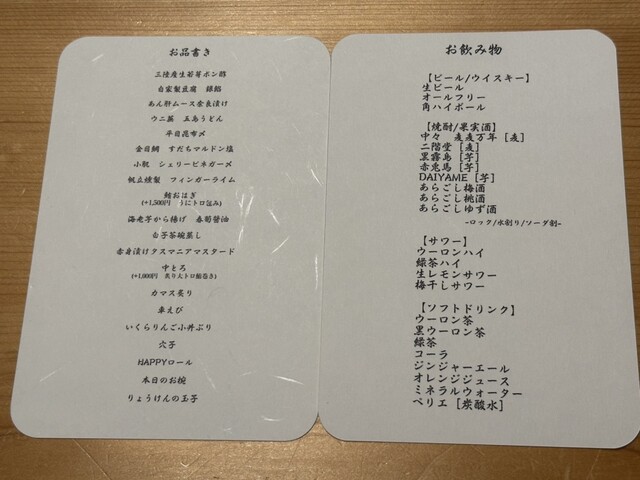 お品書き
三陸産生若芽ポン酢
自家製豆腐 銀餡
あん肝ムース奈良漬け
ウニ蕎 五島うどん
平目昆布〆
金目鯛 すだちマルドン塩
小肌 シェリービネガー〆
帆立燻製 フィンガーライム
鮪おはぎ
(+1,500円 うにトロ包み)
海老子から揚げ 春菊醤油
白子茶碗蒸し
赤身漬けタスマニアマスタード
中とろ
(+1,000円 炙り大トロ鮨巻き)
カマス炙り
車えび
いくらりんご小丼ぶり
穴子
HAPPYロール
本日のお椀
りょうけんの玉子
お飲み物
【ビール/ウイスキー】
生ビール
オールフリー
角ハイボール
【焼酎/果実酒】
中々 麦麦万年 [麦]
二階堂 [麦]
黒霧島 [芋]
赤兎馬 [芋]
DAIYAME [芋]
あらごし梅酒
あらごし桃酒
あらごしゆず酒
-ロック/水割り/ソーダ割-
【サワー】
ウーロンハイ
緑茶ハイ
生レモンサワー
梅干しサワー
【ソフトドリンク】
ウーロン茶
黒ウーロン茶
緑茶
コーラ
ジンジャーエール
オレンジジュース
ミネラルウォーター
ペリエ [炭酸水]